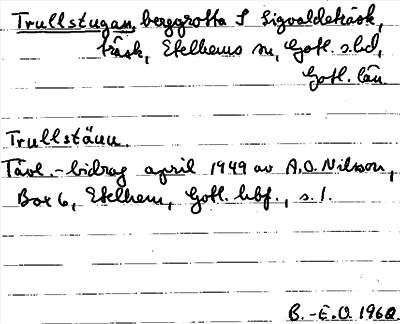 Trullstugan, berggrotta S Sigvaldeträsk,
träsk, Etelhems sn, Gotl. s. hd,
Gotl. län
Trullstäun
Tävl.-bidrag april 1949 av A.O. Nilsson,
Box 6, Etelhem, Gotl. hbf., s. 1.
B.-E.O. 1960